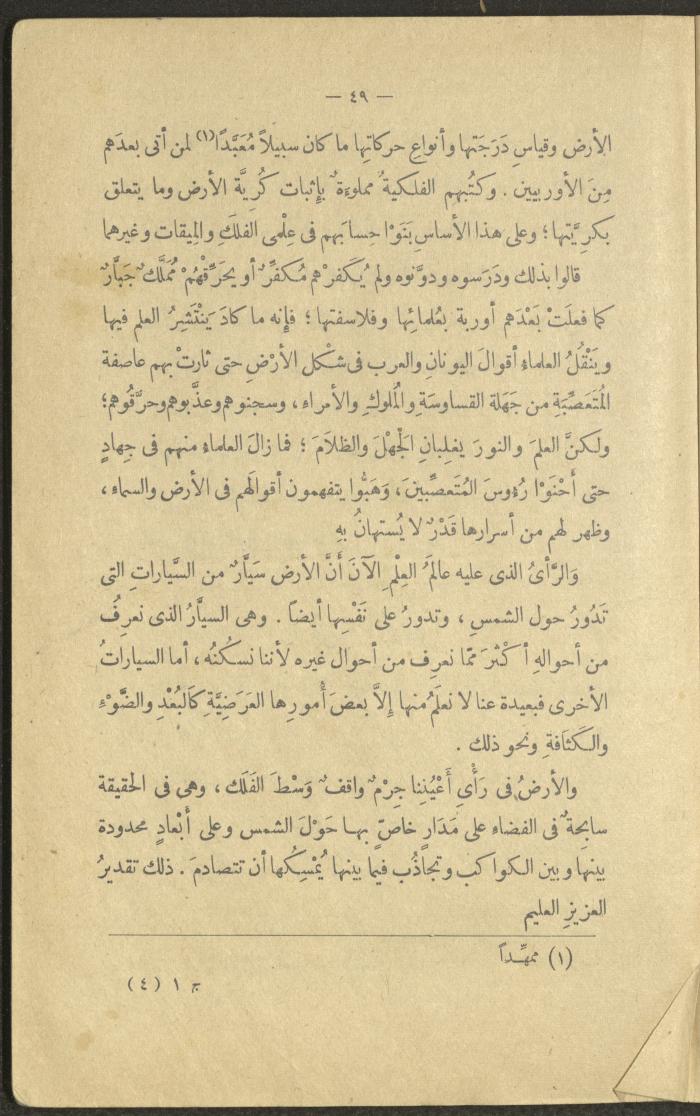 — ٤٩ —
الأرض وقياسِ دَرَجَتها وأنواعِ حركاتِها ما كان سبيلاً مُعَبَّدًا(١) لمن أتى بعدَهم
مِنَ الأوربيين . وكتُبهم الفلكيةُ مملوءةٌ بإثبات كُرِيَّة الأرض وما يتعلق
بكريَّتها ؛ وعلى هذا الأساسِ بَنَوْا حسابَهم فى عِلْمى الفلَكِ والميقات وغيرهما
قالوا بذلك ودَرَسوه ودوَّنوه ولم يُكَفرْهم مُكفِّرٌ أو يحَرِّقْهُمْ مُمَلَّكٌ جَبَّارٌ
كما فعلَتْ بَعْدَهم أوربة بعُلمائِها وفلاسفتها ؛ فإنه ما كادَ يَنْتَشِرُ العلم فيها
ويَنْقُلُ العلماء أقوالَ اليونانِ والعرب فى شكْل الأرْضِ حتى ثارتْ بهم عاصفة
المُتَعَصِّبَةِ من جَهَلة القساوسَةِ والمُلوكِ والأمراء ، وسجنوهم وعذَّبوهم وحرَّقُوهم ؛
ولكنَّ العلمَ والنورَ يغلِبانِ الجْهلَ والظلاَمَ ؛ فما زالَ العلماء منهم فى جِهادٍ
حتى أَحْنَوْا رُءوسَ المُتَعصِّبينَ ، وَهَبُّوا يتفهمون أقوالهَم فى الأرض والسماء ،
وظهر لهم من أسرارها قَدْرٌ لا يُستهانُ بهِ
وَالرَّأىُ الذى عليه عالمَُ العِلْمِ الآنَ أنَّ الأرض سَيَّارٌ من السَّياراتِ التى
تَدُورُ حول الشمسِ ، وتدورُ على نَفْسِها أيضاً . وهى السيَّارُ الذى نعرِفُ
من أحوالهِ أكْثَرَ ممّا نعرِف من أحوال غيره لأننا نسكُنُه ، أما السياراتُ
الأخرى فبعيدة عنا لا نعلَمُ منها إلاَّ بعضَ أُمورِها العَرَضِيَّةِ كالبُعْدِ والضَّوْءِ
والكَثافةِ ونحو ذلك .
والأرضُ فى رَأْىِ أَعْيُنِنا جِرْمٌ واقفٌ وَسْطَ الفَلَك ، وهى فى الحقيقة
سابحةٌ فى الفضاء على مَدَارٍ خاصٍّ بها حَوْلَ الشمس وعلى أَبْعادٍ محدودة
بينها وبين الكواكب وتجاذُب فيما بينها يُمْسِكُها أن تتصادمَ . ذلك تقديرُ
العزيزِ العليم
(١) ممهَّداً
ج ١ (٤)